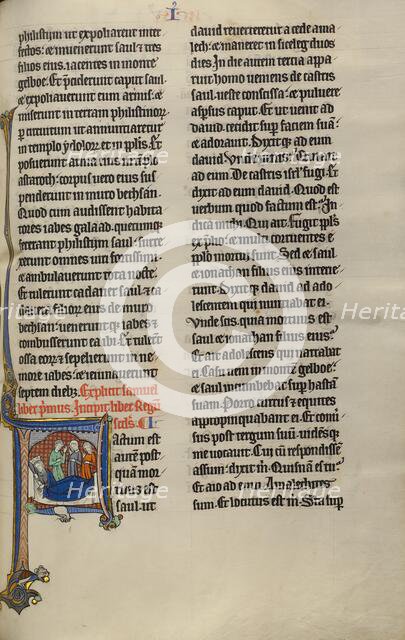 I
philistiim ut expoliarent inter
fectos: et invenerunt saul et tres
filios eius iacentes in monte
gelboe. Et preciderunt caput saul
et expoliaverunt eum armis: et
miserunt in terram philistinor
per circuitum ut annuntiaretur
in templo ydolor et in pplis. Et
posuerunt eius in templo
astaroth: corpus vero eius sus
in muro bethsan.
Quod cum audissent habita
tores iabes galaad
fecerant philistiim saul: surre
xerunt omnes viri fortissimi
et ambulaverunt tota nocte.
Et tulerunt cadaver saul et ca
eius de muro
bethsan: venerunt iabes et
ea ibi. Et tulerunt
ossa eor et sepelierunt in ne
more iabes: et ieiunaverunt
septem dieb. Explicit samuel
liber primus. Incipit liber Regu
scds. I
Factum est
autem post
quam mor
tuus est
saul: ut
david reverteretur a cede ama
lech: et maneret in siceleg duos
dies. In die autem tercia appa
ruit homo veniens de castris
saul veste conscissa: et pulvere
aspsus caput. Et ut venit ad
david: cecidit sup faciem suam
et adoravit. Dixitq ad eum
david. Un venis. Qui ait ad
eum. De castris isrl fugi. Et
dixit ad eum david. Quod est
verbum quod factum est: In
dica michi. Qui ait. Fugit ppls
ex plio: et multi corruentes e
pplo mortui sunt. Sed et saul
et ionathan filius eius interie
runt. Dixitq david ad ado
lescentem qui nuntiabat ei.
Unde scis quia mortuus est
saul et ionathan filius eius.
Et ait adolescens qui narrabat
ei. Casu veni in monte gelboe.
et saul incumbebat sup hastam
suam. Porro currus et equites
appropinquabant ei. Et conv
sus post tergum suum: vidensq
me vocavit. Cui cu respondissem
assum: dixit m. Quisnam es tu.
Et aio ad eum. Amalechites
sum. Et locutus est m. Sta sup
Heritage
Heritage
Heritage
Heritage